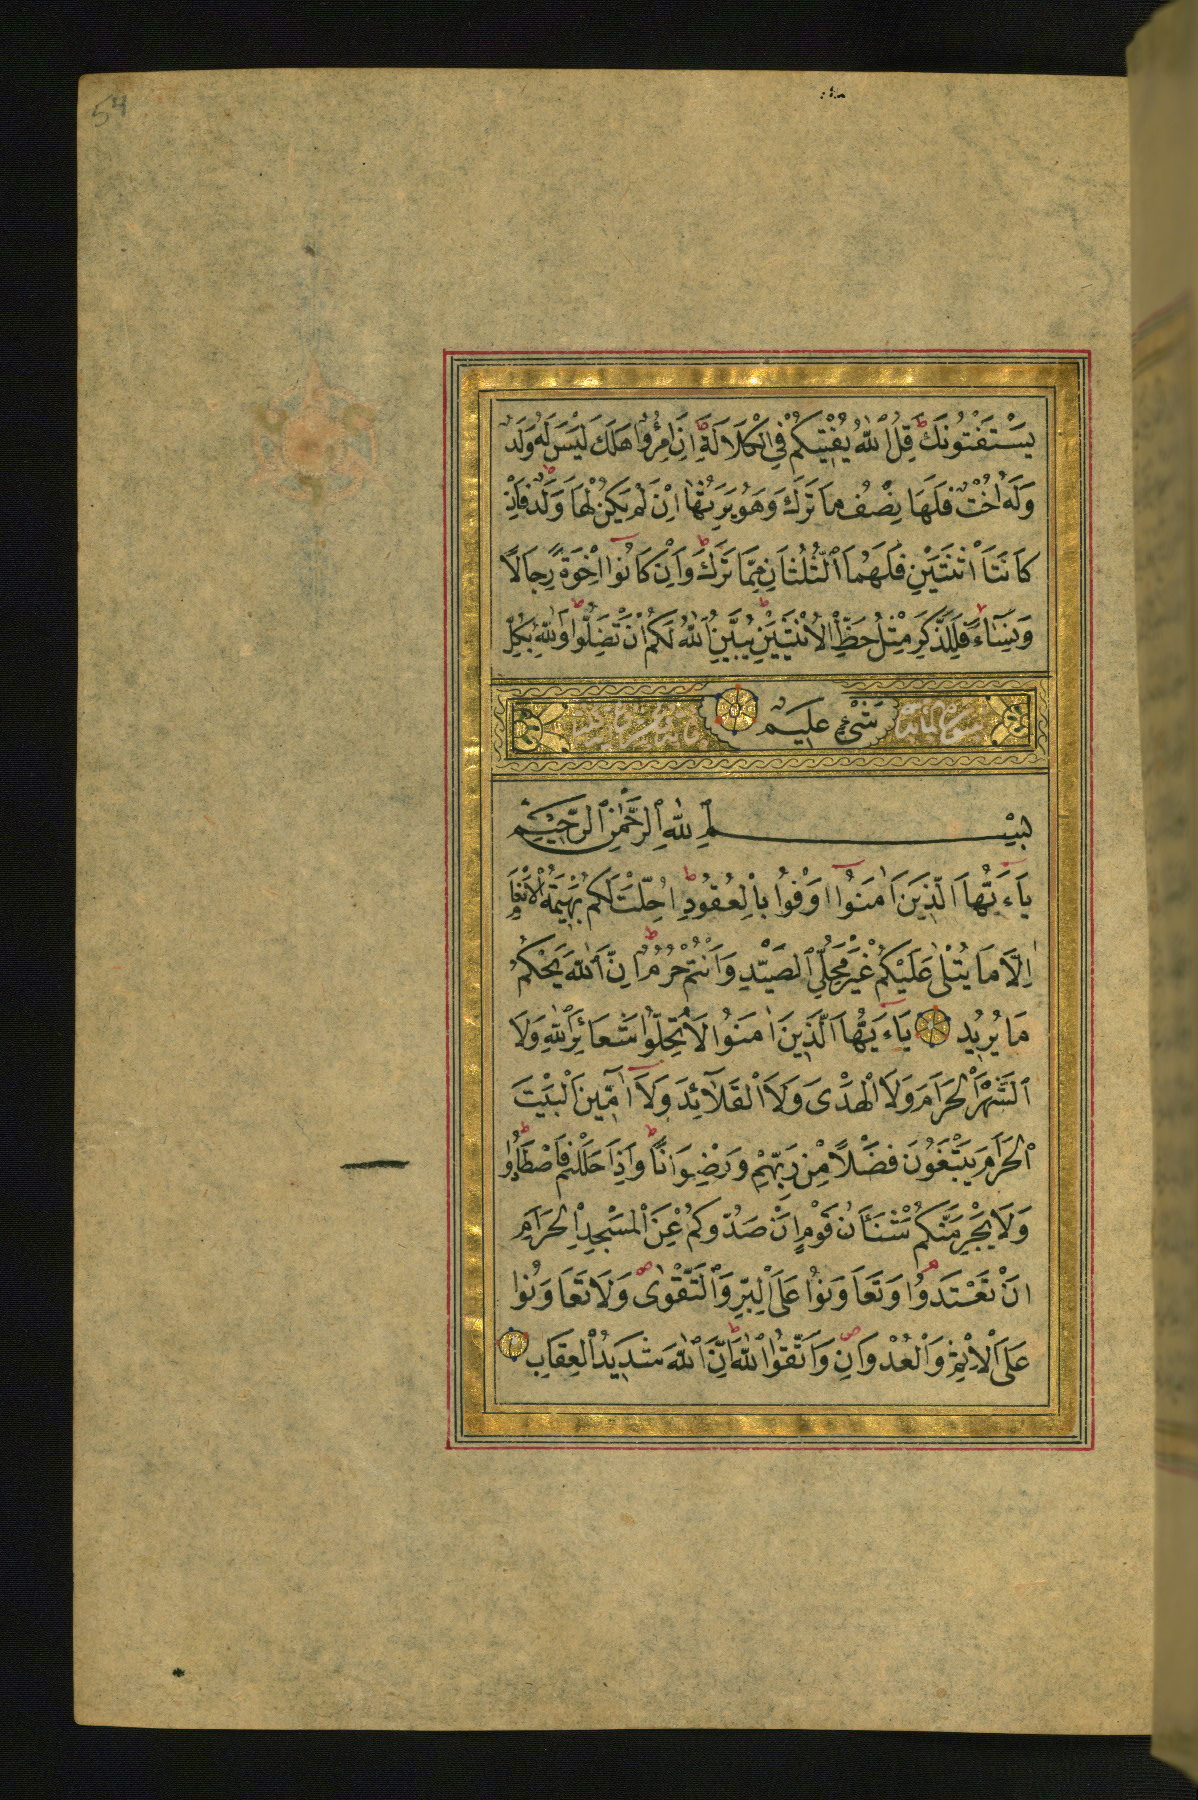 54
يَسْتَفْتُونَكَ قُلِ ٱللَّهُ يُفْتِيكُمْ فِي الْكَلَالَةِ اِنِ امْرُؤٌا هَلَكَ لَيْسَ لَهُ وَلَدٌ
وَلَهُ اُخْتٌ فَلَهَا نِصْفُ مَا تَرَكَ وَهُوَ يَرِثُهَا اِنْ لَمْ يَكُنْ لَهَا وَلَدٌ فَاِنْ
كَانَتَا اثْنَتَيْنِ فَلَهُمَا ٱلثُّلُثَانِ مِمَّا تَرَكَ وَاِنْ كَانُوا اِخْوَةً رِجَالًا
وَنِسَآءً فَلِلذَّكَرِ مِثْلُ حَظِّ الْاُنْثَيَيْنِ يُبَيِّنُ اللّٰهُ لَكُمْ اَنْ تَضِلُّوا وَاللّٰهُ بِكُلِّ
شَىْءٍ عَلِيمٌ
بِسْمِ ٱللّٰهِ ٱلرَّحْمٰنِ ٱلرَّحِيْمِ
يَآءَيُّهَا الَّذِينَ اٰمَنُوٓا اَوْفُوا بِالْعُقُودِ اُحِلَّتْ لَكُمْ بَهِيمَةُ الْاَنْعَامِ
اِلَّا مَا يُتْلٰى عَلَيْكُمْ غَيْرَ مُحِلِّي ٱلصَّيْدِ وَاَنْتُمْ حُرُمٌ اِنَّ ٱللّٰهَ يَحْكُمُ
مَا يُرِيْدُ يَآءَيُّهَا ٱلَّذِينَ اٰمَنُوا لَا تُحِلُّوا شَعَائِرَ ٱللّٰهِ وَلَا
ٱلشَّهْرَ ٱلْحَرَامَ وَلَا الْهَدْىَ وَلَا ٱلْقَلَآئِدَ وَلَآ اٰمِّينَ الْبَيْتَ
ٱلْحَرَامَ يَبْتَغُونَ فَضْلًا مِنْ رَبِّهِمْ وَرِضْوَانًا وَاِذَا حَلَلْتُمْ فَاصْطَادُوا
وَلَا يَجْرِمَنَّكُمْ شَنَـَٔانُ قَوْمٍ اَنْ صَدُّوكُمْ عَنِ ٱلْمَسْجِدِ الْحَرَامِ
اَنْ تَعْتَدُوا وَتَعَاوَنُوا عَلَى الْبِرِّ وَٱلتَّقْوٰى وَلَا تَعَاوَنُوا
عَلَى ٱلْاِثْمِ وَٱلْعُدْوَانِ وَٱتَّقُوا ٱللّٰهَ اِنَّ ٱللّٰهَ شَدِيدُ الْعِقَابِ